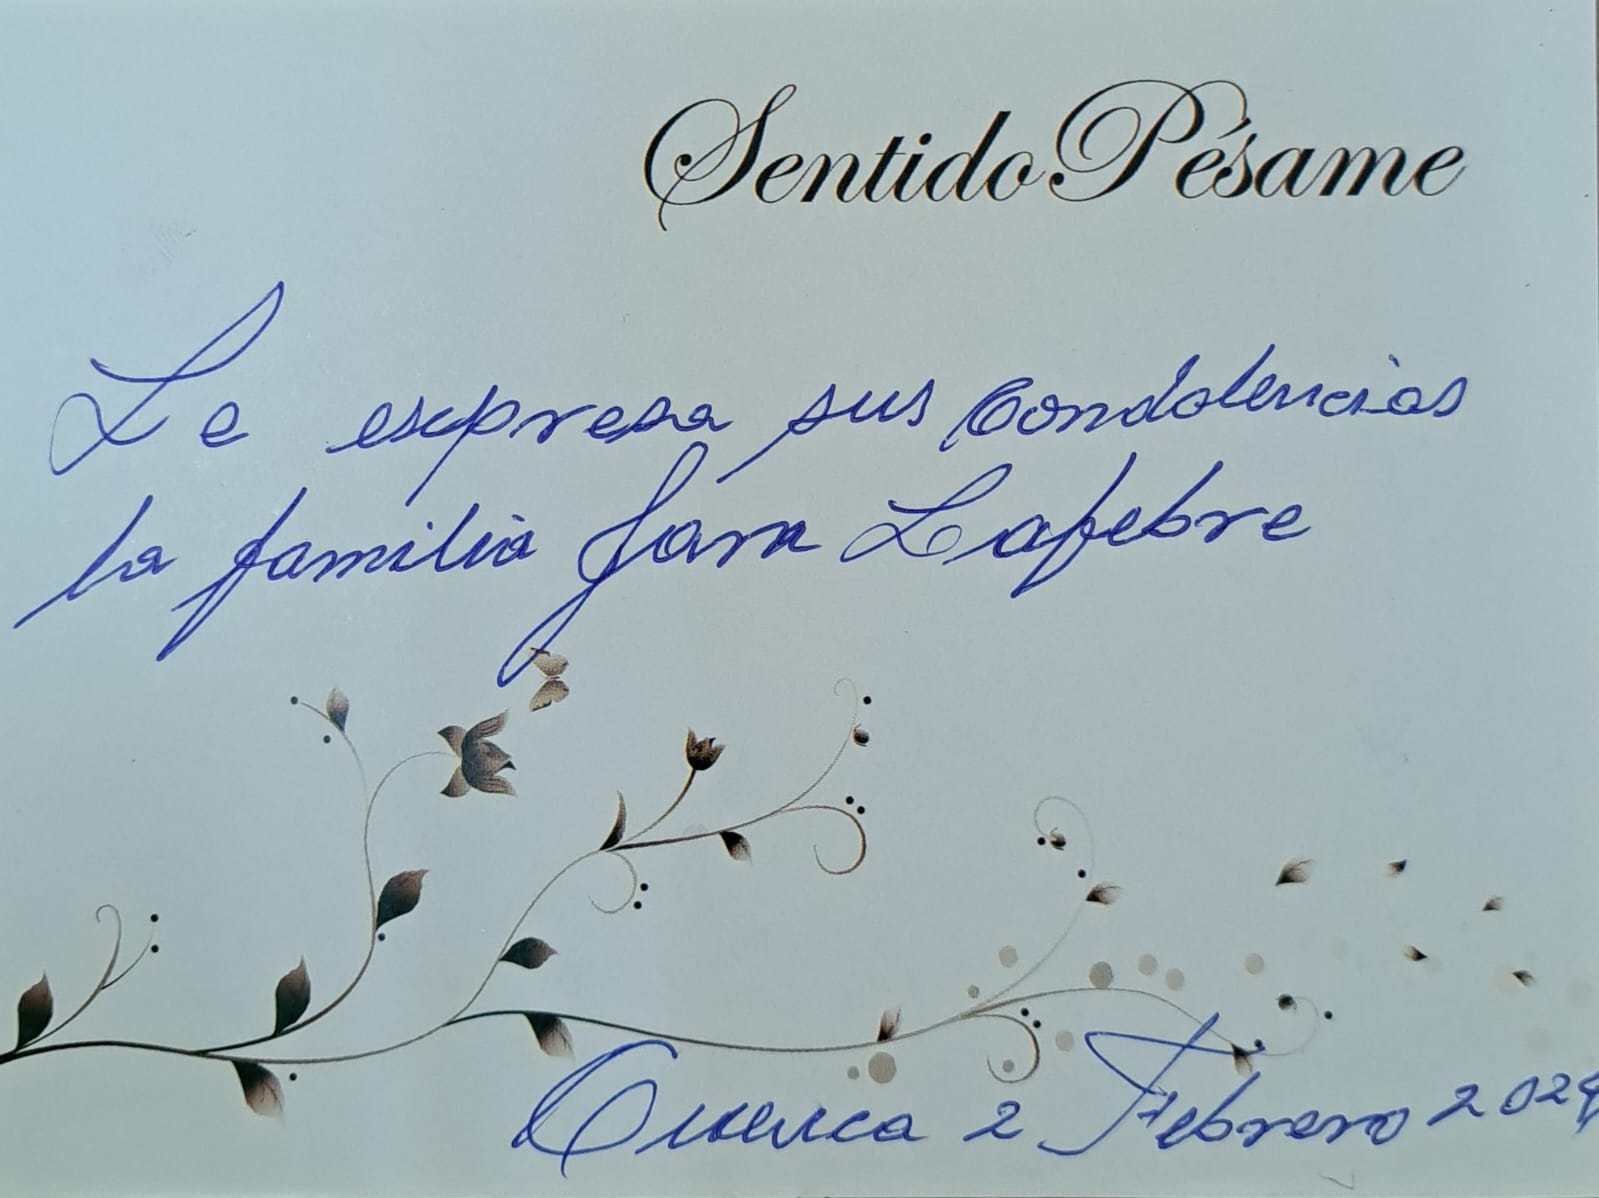 Sentido Pésame
Le expresa sus Condolencias
la familia Jara Lafebre
Cuenca 2 Febrero 2024